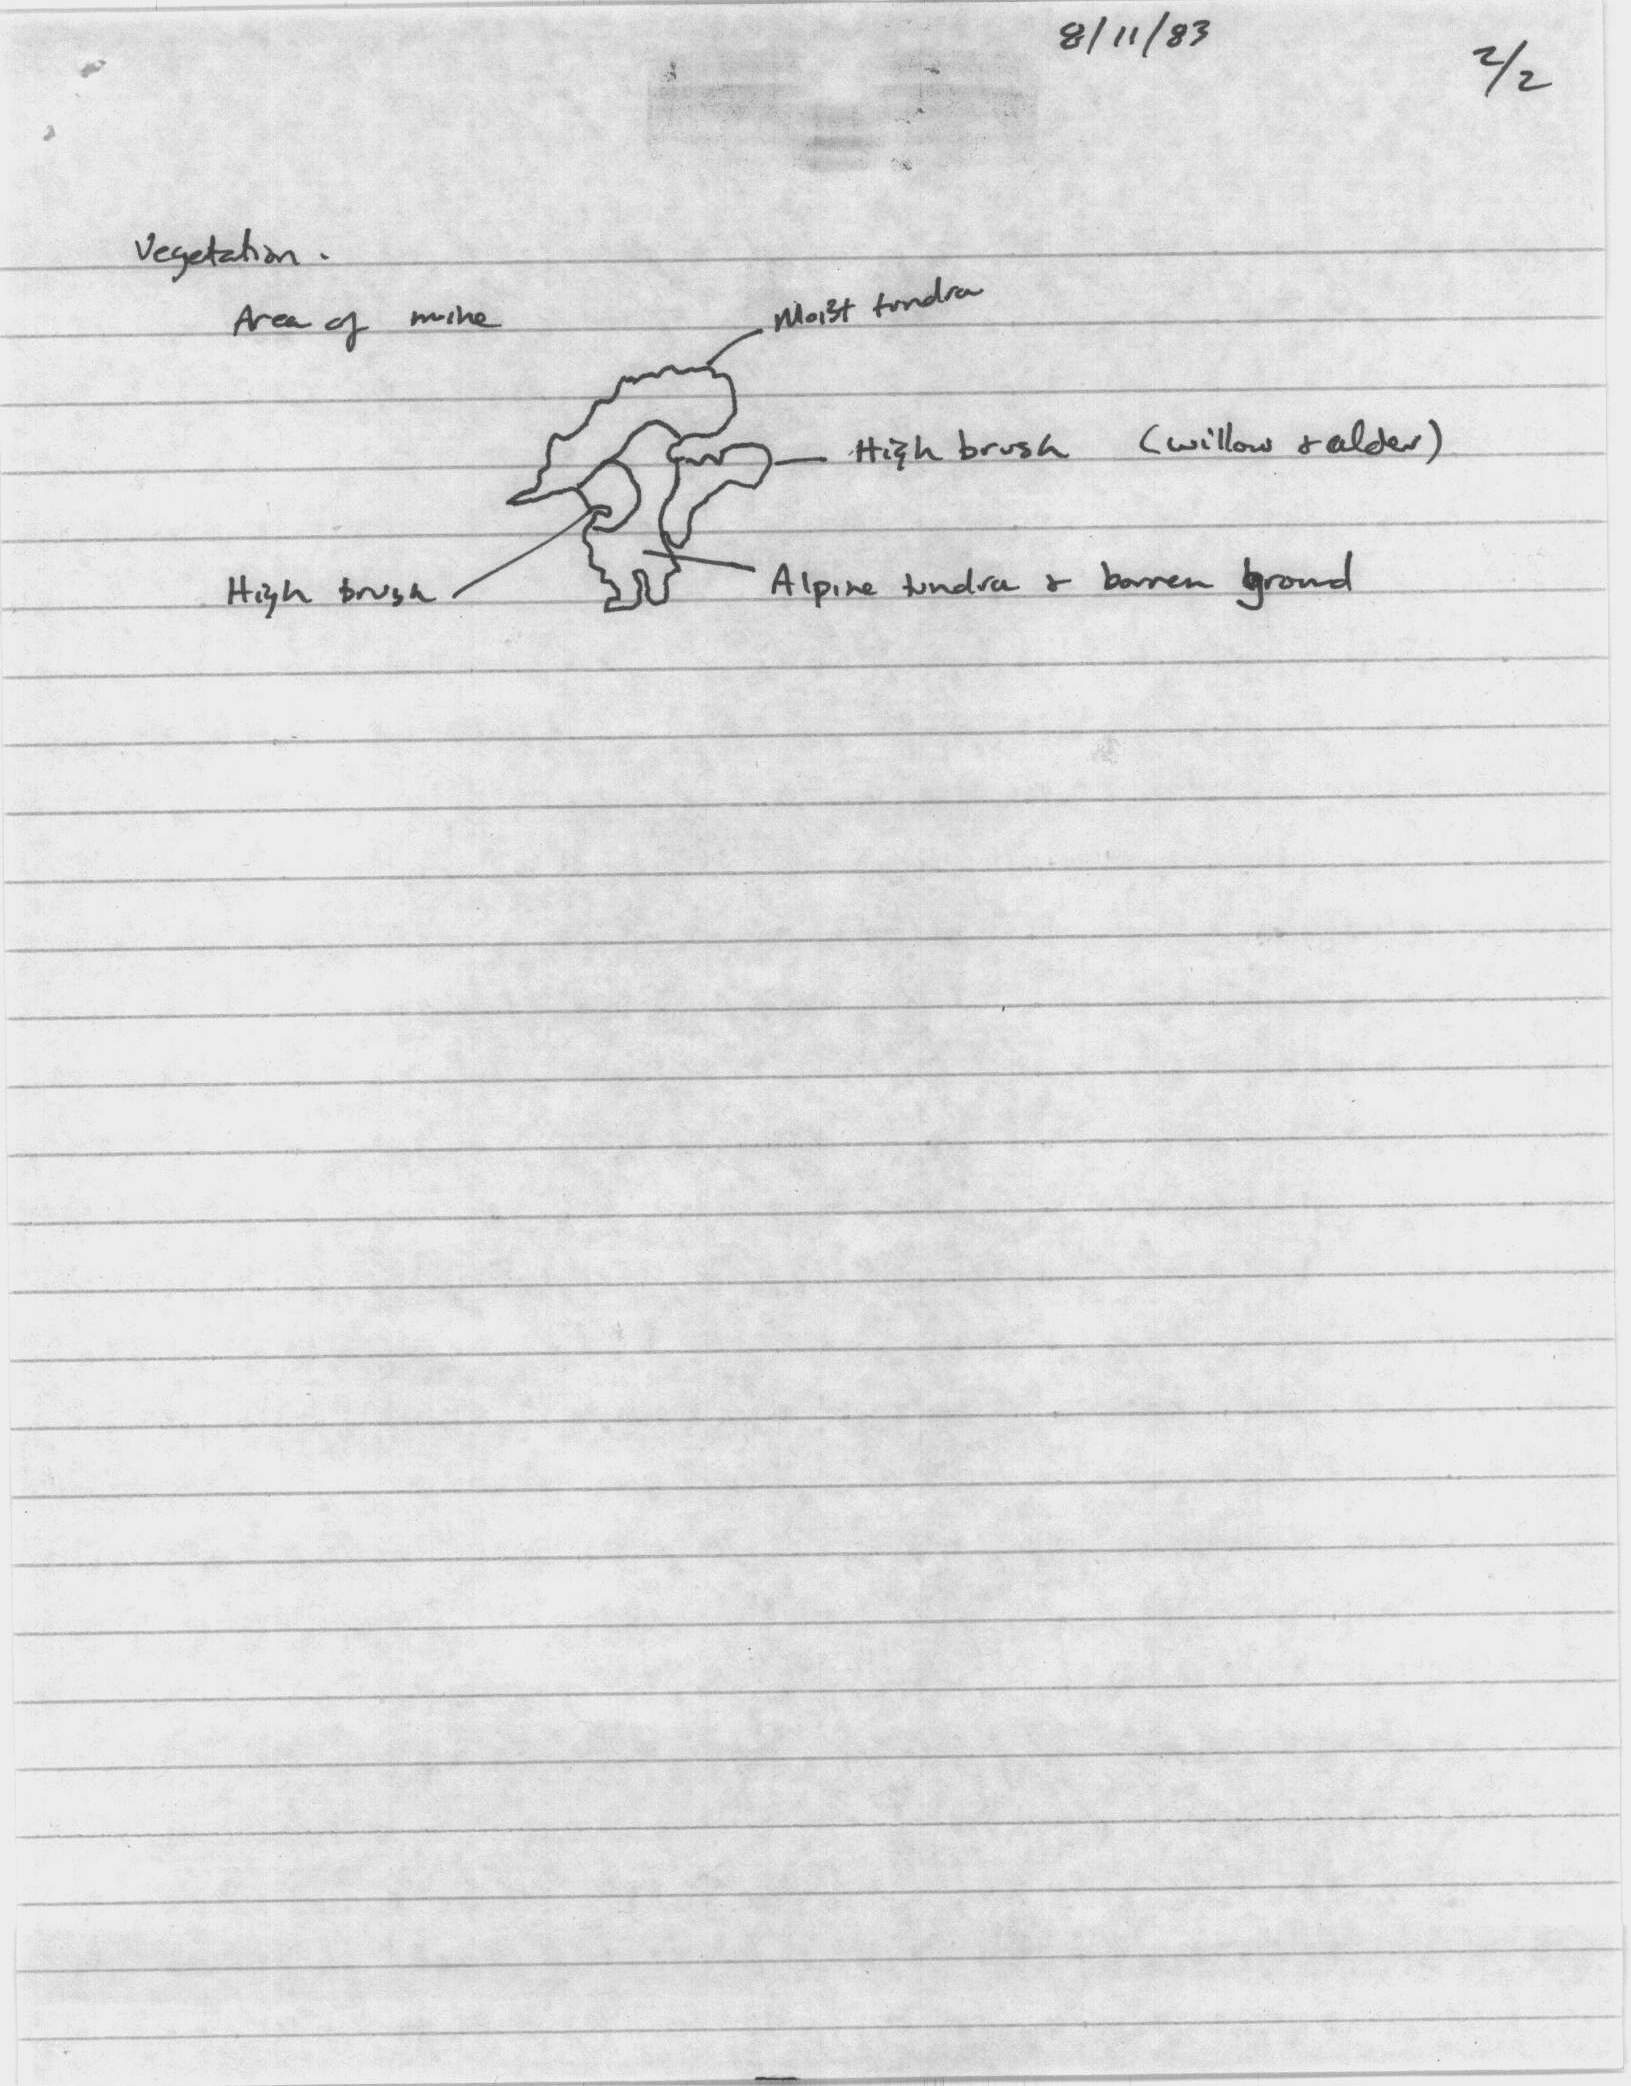 8/11/83
2/2
Vegetation.
Area of mine
Moist tundra
High brush (willow & alder)
High brush
Alpine tundra & barren ground